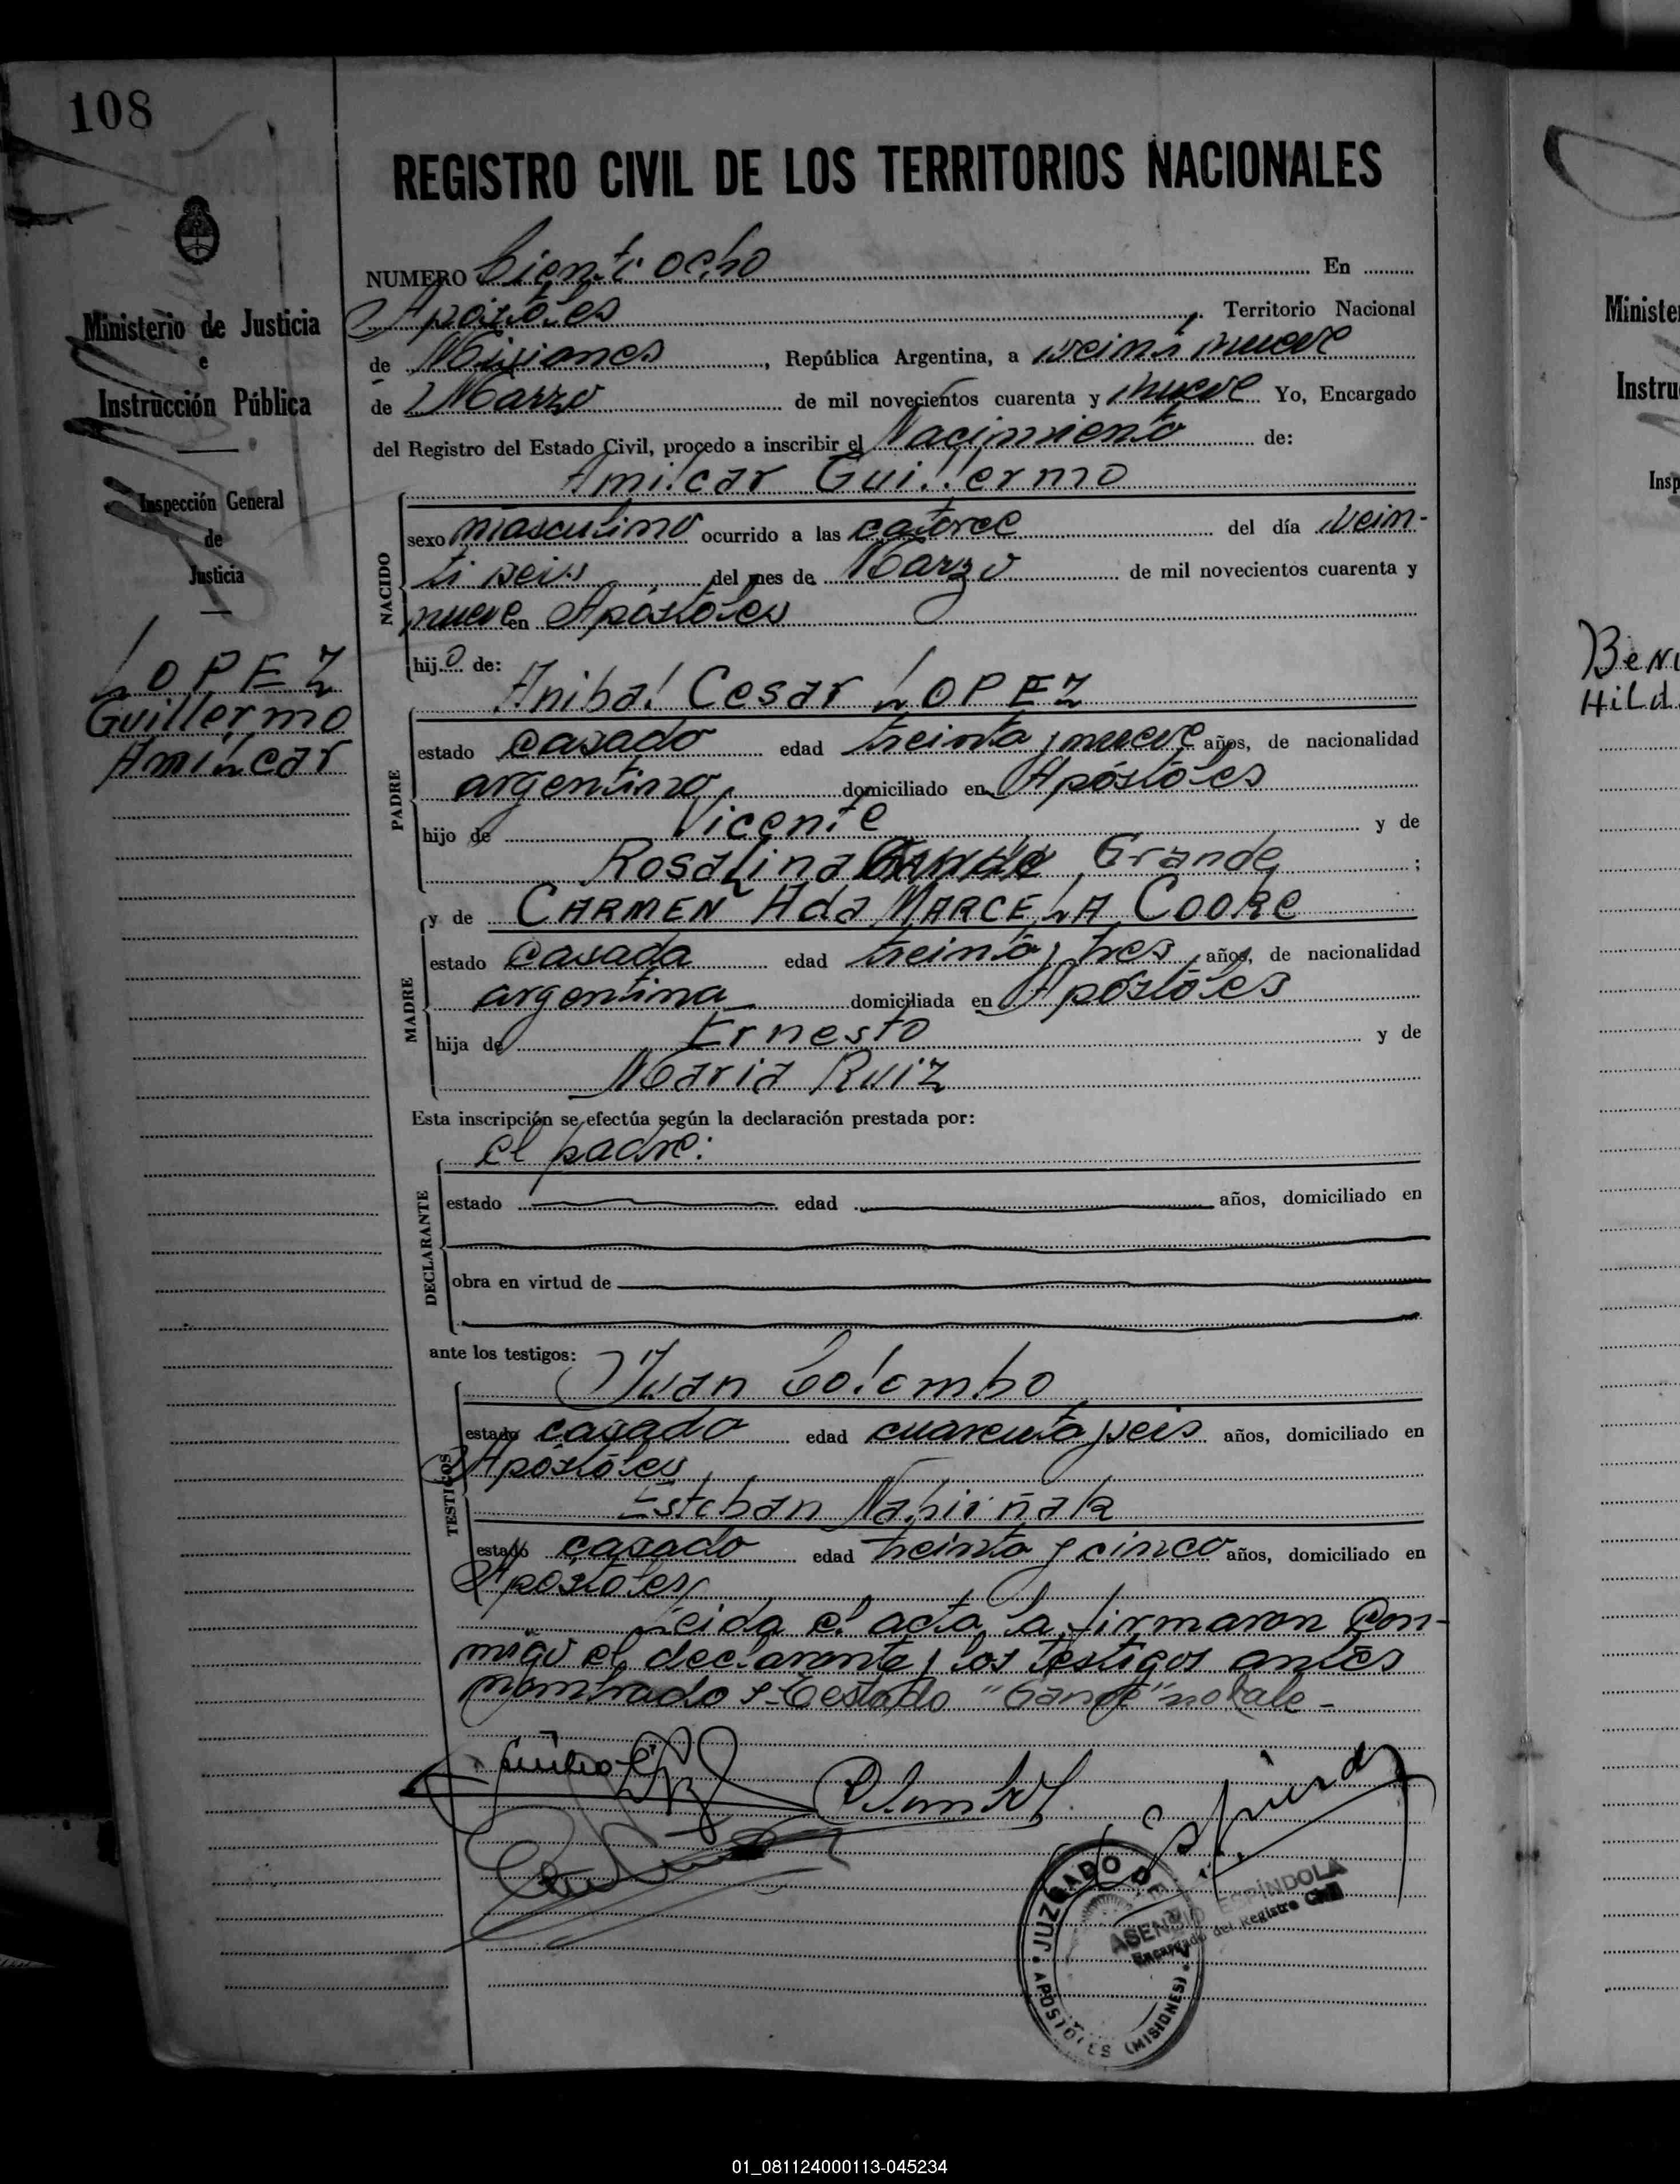 108
REGISTRO CIVIL DE LOS TERRITORIOS NACIONALES
Ministerio de Justicia
e
Instrucción Pública
Inspección General
de
Justicia
LOPEZ
Guillermo
Amílcar
NUMERO Ciento ocho En
Apóstoles, Territorio Nacional
de Misiones, República Argentina, a veinti nueve
de Marzo de mil novecientos cuarenta y nueve Yo, Encargado
del Registro del Estado Civil, procedo a inscribir el Nacimiento de:
Amilcar Guillermo
NACIDO
sexo masculino ocurrido a las catorce del día vein-
ti seis del mes de Marzo de mil novecientos cuarenta y
nueve en Apóstoles
hijo de:
Anibal Cesar LOPEZ
PADRE
estado casado edad treinta y nueve años, de nacionalidad
argentino domiciliado en Apóstoles
hijo de Vicente y de
Rosalina Grande ;
y de CARMEN Ada MARCELA COOKE
MADRE
estado casada edad treinta y tres años, de nacionalidad
argentina domiciliada en Apóstoles
hija de Ernesto y de
Maria Ruiz
Esta inscripción se efectúa según la declaración prestada por:
el padre:
DECLARANTE
estado edad años, domiciliado en
obra en virtud de
ante los testigos:
Juan Colombo
TESTIGOS
estado casado edad cuarenta y seis años, domiciliado en
Apóstoles
Esteban
estado casado edad treinta y cinco años, domiciliado en
Apóstoles
Leida el acta la firmaron con-
migo el declarante y los testigos antes
nombrado
JUZGADO DE
APOSTOLES (MISIONES)
ASENCIO ESPÍNDOLA
Encargado del Registro Civil
Ministe
Instru
Insp
Hild
01_081124000113-045234